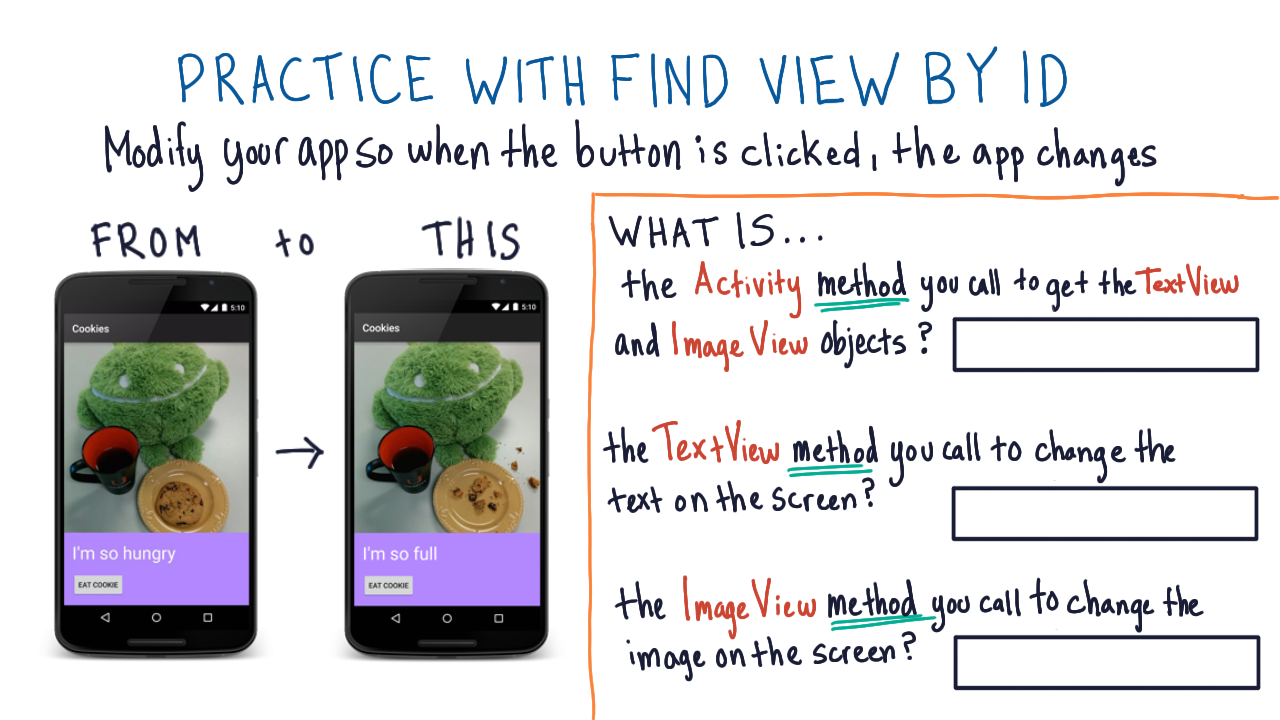 PRACTICE WITH FIND VIEW BY ID
Modify your app so when the button is clicked, the app changes
FROM to THIS
5:10
Cookies
I'm so hungry
EAT COOKIE
5:10
Cookies
I'm so full
EAT COOKIE
WHAT IS...
the Activity method you call to get the TextView
and Image View objects?
the TextView method you call to change the
text on the screen?
the Image View method you call to change the
image on the screen?